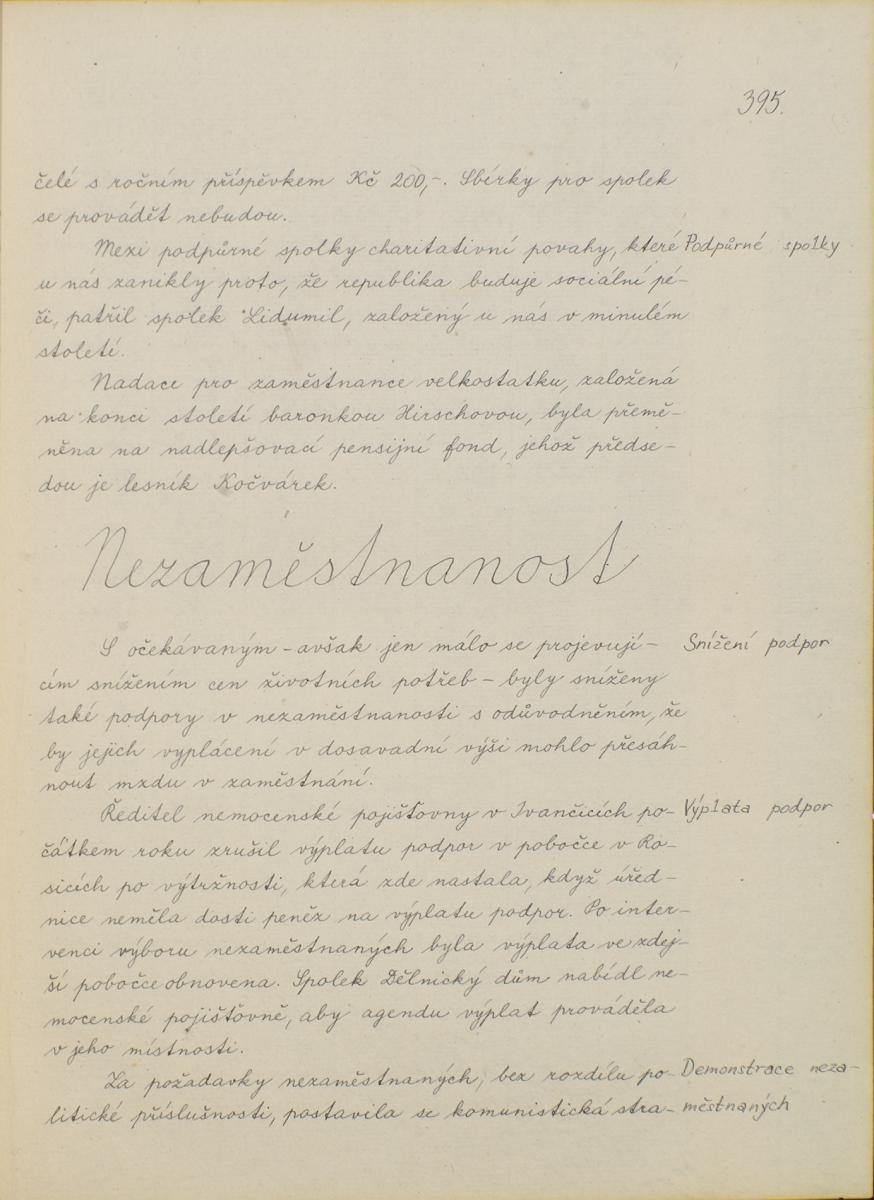 395.
čelé s ročním příspěvkem Kč 200,-. Sbírky pro spolek
se provádět nebudou.
Mezi podpůrné spolky charitativní povahy, které Podpůrné spolky
u nás zanikly proto, že republika buduje sociální pé-
či, patřil spolek Lidumil, založený u nás v minulém
století.
Nadace pro zaměstnance velkostatku, založená
na konci století baronkou Hirschovou, byla přemě-
něna na nadlepšovací pensijní fond, jehož předse-
dou je lesník Kočvárek.
Nezaměstnanost
S očekávaným - avšak jen málo se projevují- Snížení podpor
cím snížením cen životních potřeb - byly sníženy
také podpory v nezaměstnanosti s odůvodněním, že
by jejich vyplácení v dosavadní výši mohlo přesáh-
nout mzdu v zaměstnání.
Ředitel nemocenské pojišťovny v Ivančicích po- Výplata podpor
čátkem roku zrušil výplatu podpor v pobočce v Ro-
sicích po výtržnosti, která zde nastala, když úřed-
nice neměla dosti peněz na výplatu podpor. Po inter-
venci výboru nezaměstnaných byla výplata ve zdej-
ší pobočce obnovena. Spolek Dělnický dům nabídl ne-
mocenské pojišťovně, aby agendu výplat prováděla
v jeho místnosti.
Za požadavky nezaměstnaných, bez rozdílu po- Demonstrace neza-
litické příslušnosti, postavila se komunistická stra- městnaných